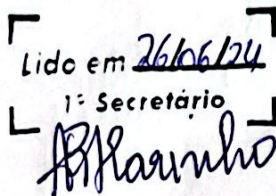 Lido em 26/06/24
1º Secretário
Marinho